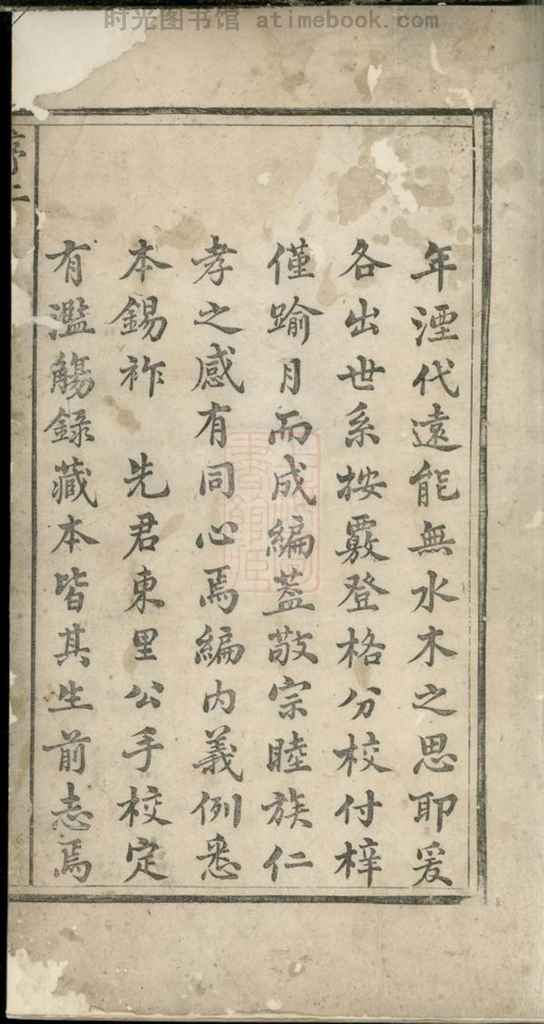 时光图书馆 atimebook.com
年湮代遠能無水木之思耶爰
各出世系按覈登格分校付梓
僅踰月而成編蓋敬宗睦族仁
孝之感有同心焉編内義例悉
本錫祚 先君東里公手校定
有濫觴録藏本皆其生前志焉
序二